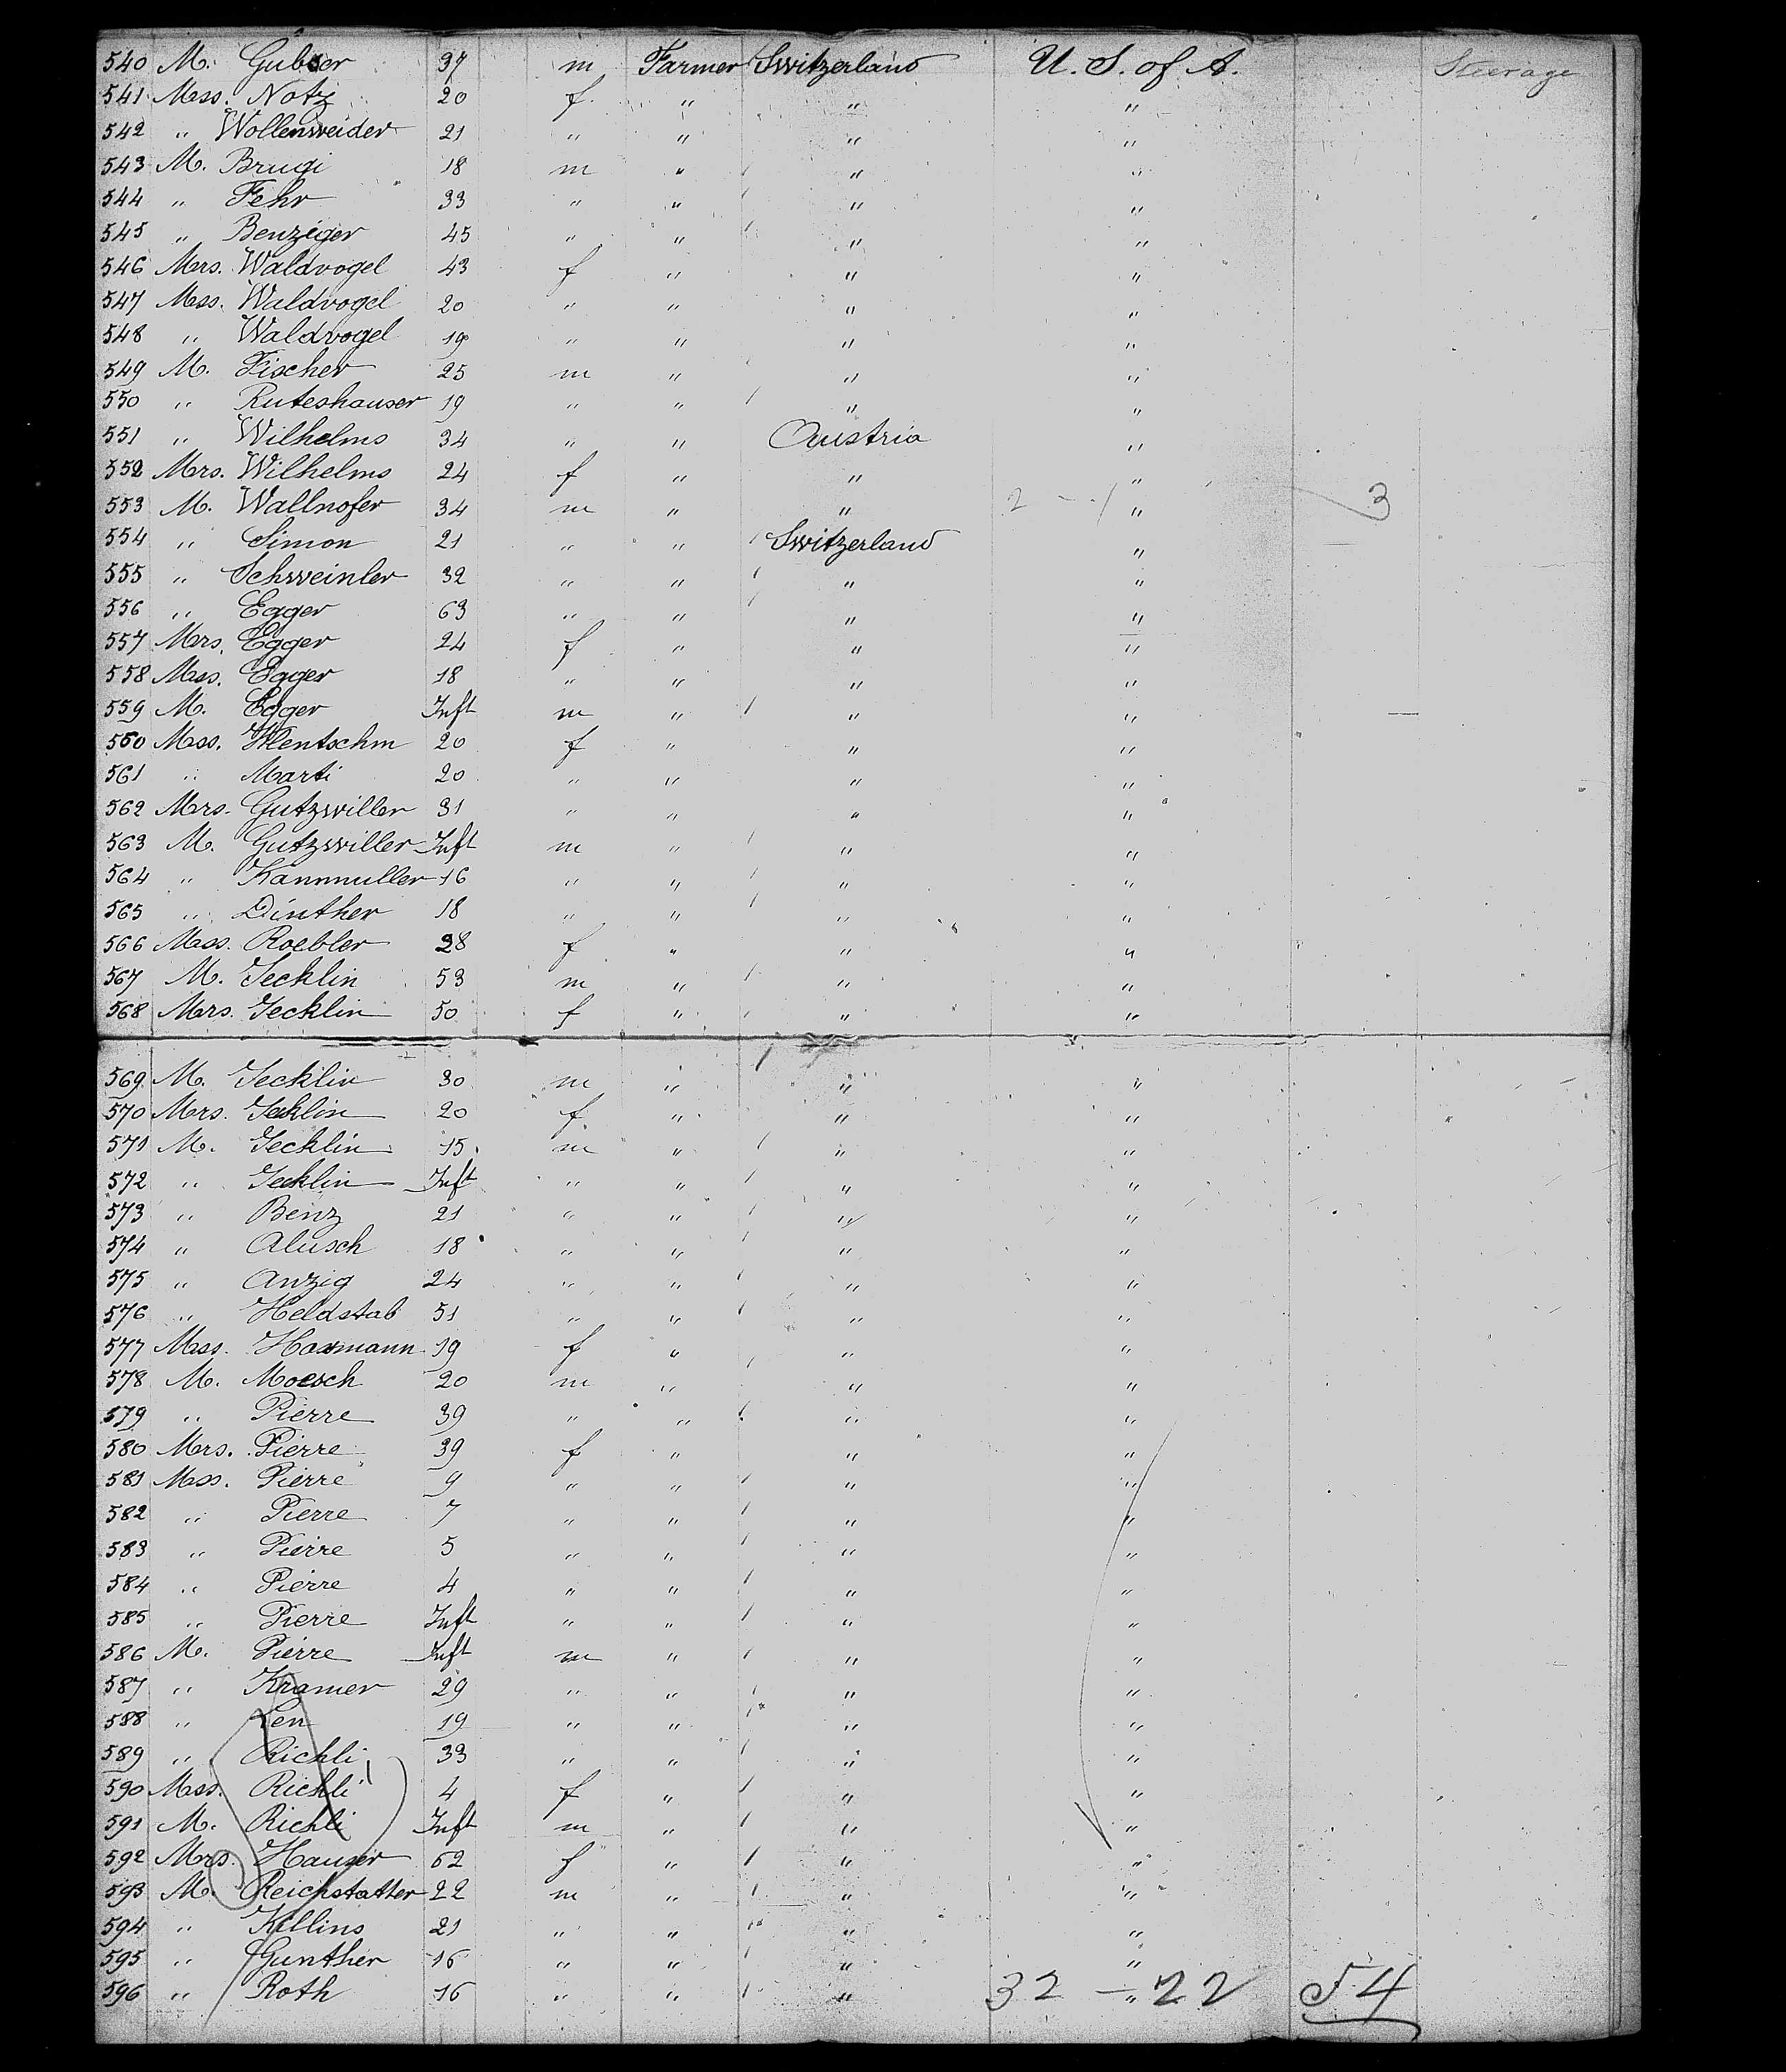 540 M. Gubser 37 m Farmer Switzerland U. S. of A. Steerage
541 Mss. Notz 20 f " " "
542 " Wollenweider 21 " " " "
543 M. Brugi 18 m " " "
544 " Fehr 33 " " " "
545 " Benziger 45 " " " "
546 Mrs. Waldvogel 43 f " " "
547 Mss. Waldvogel 20 " " " "
548 " Waldvogel 19 " " " "
549 M. Fischer 25 m " " "
550 " Ruteshauser 19 " " " "
551 " Wilhelms 34 " " Austria "
552 Mrs. Wilhelms 24 f " " "
553 M. Wallnofer 34 m " " 2 - 1 " 3
554 " Simon 21 " " Switzerland "
555 " Schweinler 32 " " " "
556 " Egger 63 " " " "
557 Mrs. Egger 24 f " " "
558 Mss. Egger 18 " " " "
559 M. Egger Inft m " " "
560 Mss. Hentschm 20 f " " "
561 " Marti 20 " " " "
562 Mrs. Gutzwiller 31 " " " "
563 M. Gutzwiller Inft m " " "
564 " Kannmuller 16 " " " "
565 " Dinther 18 " " " "
566 Mss. Roebler 28 f " " "
567 M. Jecklin 53 m " " "
568 Mrs. Jecklin 50 f " " "
569 M. Jecklin 30 m " " "
570 Mrs. Jecklin 20 f " " "
571 M. Jecklin 15 m " " "
572 " Jecklin Inft " " " "
573 " Benz 21 " " " "
574 " Alusch 18 " " " "
575 " Anzig 24 " " " "
576 " Heldstab 51 " " " "
577 Mss. Haxmann 19 f " " "
578 M. Moesch 20 m " " "
579 " Pierre 39 " " " "
580 Mrs. Pierre 39 f " " "
581 Mss. Pierre 9 " " " "
582 " Pierre 7 " " " "
583 " Pierre 5 " " " "
584 " Pierre 4 " " " "
585 " Pierre Inft " " " "
586 M. Pierre Inft m " " "
587 " Kramer 29 " " " "
588 " Len 19 " " " "
589 " Richli 33 " " " "
590 Mss. Richli 4 f " " "
591 M. Richli Inft m " " "
592 Mrs. Hauser 62 f " " "
593 M. Reichstatter 22 m " " "
594 " Killins 21 " " " "
595 " Gunther 16 " " " "
596 " Roth 16 " " " 32 - " 22 54